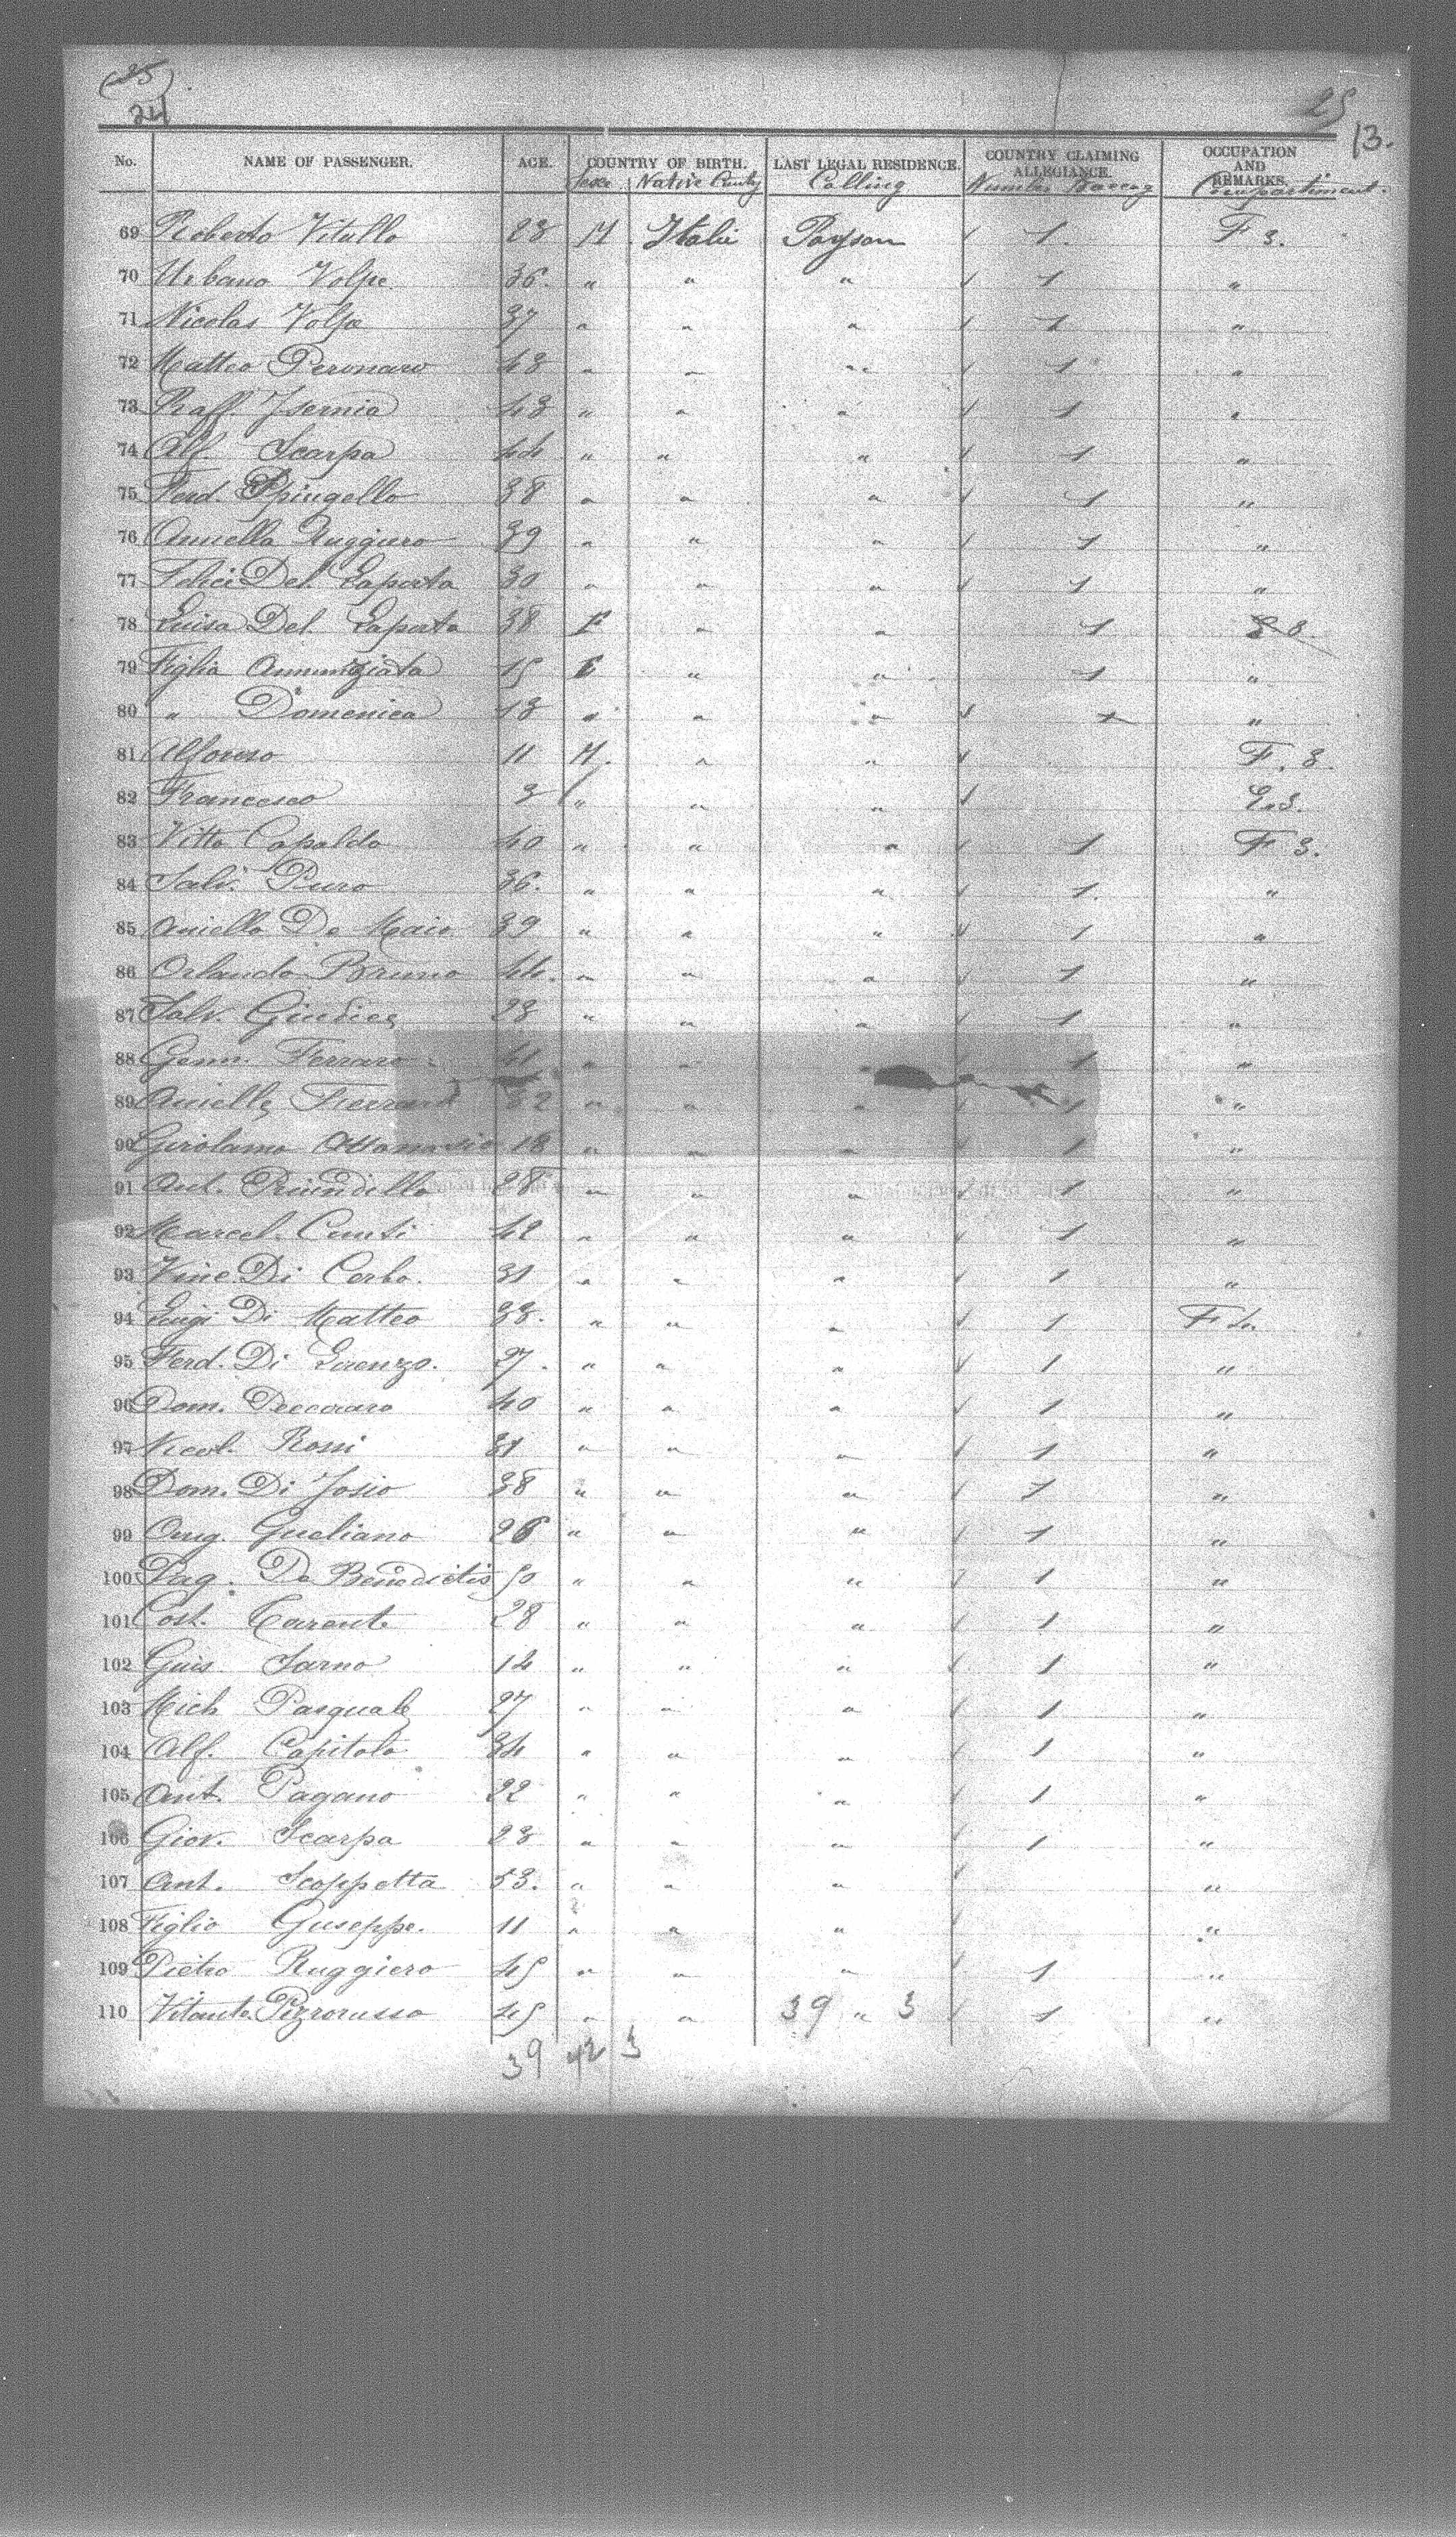 (25)
24
25
13.
No. NAME OF PASSENGER. AGE. COUNTRY OF BIRTH. LAST LEGAL RESIDENCE. COUNTRY CLAIMING ALLEGIANCE. OCCUPATION AND REMARKS.
Sexe Native Cuntry Calling Number Compartiment.
69 Roberto Vitullo 28 M Italie Paysan 1. F 3.
70 Urbano Volpe 36. " " " 1 "
71 Nicolas Volpe 37 " " " 1 "
72 Matteo Peronaro 48 " " " 1 "
73 Raff. Isernia 43 " " " 1 "
74 Alf. Scarpa 44 " " " 1 "
75 Ferd. Spingello 38 " " " 1 "
76 Aniella Ruggiero 39 " " " 1 "
77 Felice Del. Laporta 30 " " " 1 "
78 Luisa Del. Laporta 38 F " " 1
79 Figlia Annunziata 15 F " " 1 "
80 " Domenica 13 " " " "
81 Alfonso 11 M. " " F. 3.
82 Francesco 3 " " "
83 Vitto Capaldo 40 " " " 1 F 3.
84 Salv. Puro 36. " " " 1. "
85 Aniello De Maio 39 " " " 1 "
86 Orlando Bruno 44. " " " 1 "
87 Salv. Giudice 28 " " " 1 "
88 Genn. Ferraro 41 " " " 1 "
89 Aniello Ferraro 32 " " " 1 "
90 Girolamo Attanasio 18 " " " 1 "
91 Ant. 28 " " " 1 "
92 Marcel. Cunti 42 " " " 1 "
93 Vinc. Di Corbo. 31 " " " 1 "
94 Luigi Di Matteo 33. " " " 1 F 4.
95 Ferd. Di Lorenzo. 27. " " " 1 "
96 Dom. Peccoraro 40 " " " 1 "
97 Nicol. Rossi 31 " " " 1 "
98 Dom. Di Josio 38 " " " 1 "
99 Aug. Gueliano 26 " " " 1 "
100 Pag. De Benedictis 50 " " " 1 "
101 Cost. Carente 28 " " " 1 "
102 Guis. Sarno 14 " " " 1 "
103 Mich. Pasquale 27 " " " 1 "
104 Alf. Capitolo 34 " " " 1 "
105 Ant. Pagano 22 " " " 1 "
106 Giov. Scarpa 23 " " " 1 "
107 Ant. Scoppetta 53. " " " "
108 Figlio Guseppe. 11 " " " "
109 Pietro Ruggiero 45 " " " 1 "
110 Vitanto. Pizzorusso 45 " " 39 " 3 1 "
39 42 3